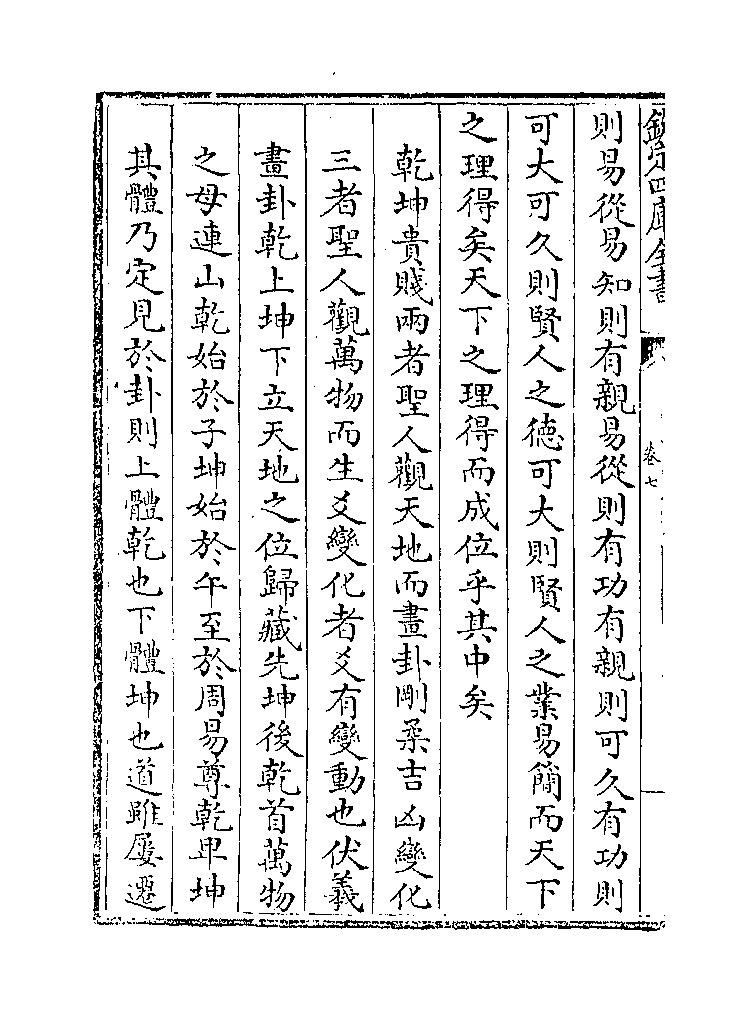 欽定四庫全書
卷七
則易從易知則有親易從則有功有親則可久有功則
可大可久則賢人之德可大則賢人之業易簡而天下
之理得矣天下之理得而成位乎其中矣
乾坤貴賤兩者聖人觀天地而畫卦剛柔吉凶變化
三者聖人觀萬物而生爻變化者爻有變動也伏羲
畫卦乾上坤下立天地之位歸藏先坤後乾首萬物
之母連山乾始於子坤始於午至於周易尊乾卑坤
其體乃定見於卦則上體乾也下體坤也道雖屢遷